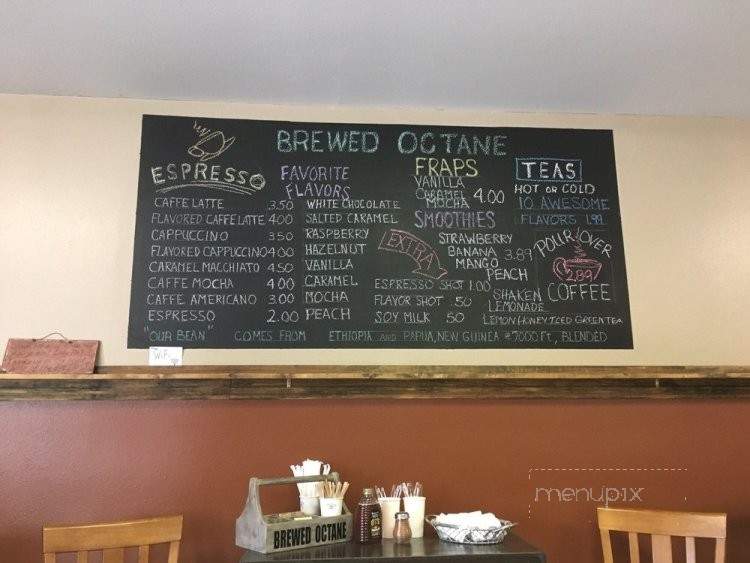 BREWED OCTANE
ESPRESSO
CAFFE LATTE 3.50
FLAVORED CAFFE LATTE 4.00
CAPPUCCINO 3.50
FLAVORED CAPPUCCINO 4.00
CARAMEL MACCHIATO 4.50
CAFFE MOCHA 4.00
CAFFE AMERICANO 3.00
ESPRESSO 2.00
FAVORITE
FLAVORS
WHITE CHOCOLATE
SALTED CARAMEL
RASPBERRY
HAZELNUT
VANILLA
CARAMEL
MOCHA
PEACH
FRAPS
VANILLA
CARAMEL 4.00
MOCHA
SMOOTHIES
STRAWBERRY
BANANA 3.89
MANGO
PEACH
EXTRA
ESPRESSO SHOT 1.00
FLAVOR SHOT .50
SOY MILK .50
TEAS
HOT OR COLD
10 AWESOME
FLAVORS 1.99
POUR OVER
2.89
COFFEE
SHAKEN
LEMONADE
LEMON HONEY ICED GREEN TEA
"OUR BEAN" COMES FROM ETHIOPIA AND PAPUA, NEW GUINEA @ 7000 Ft, BLENDED
WiFi
BREWED OCTANE
menupix